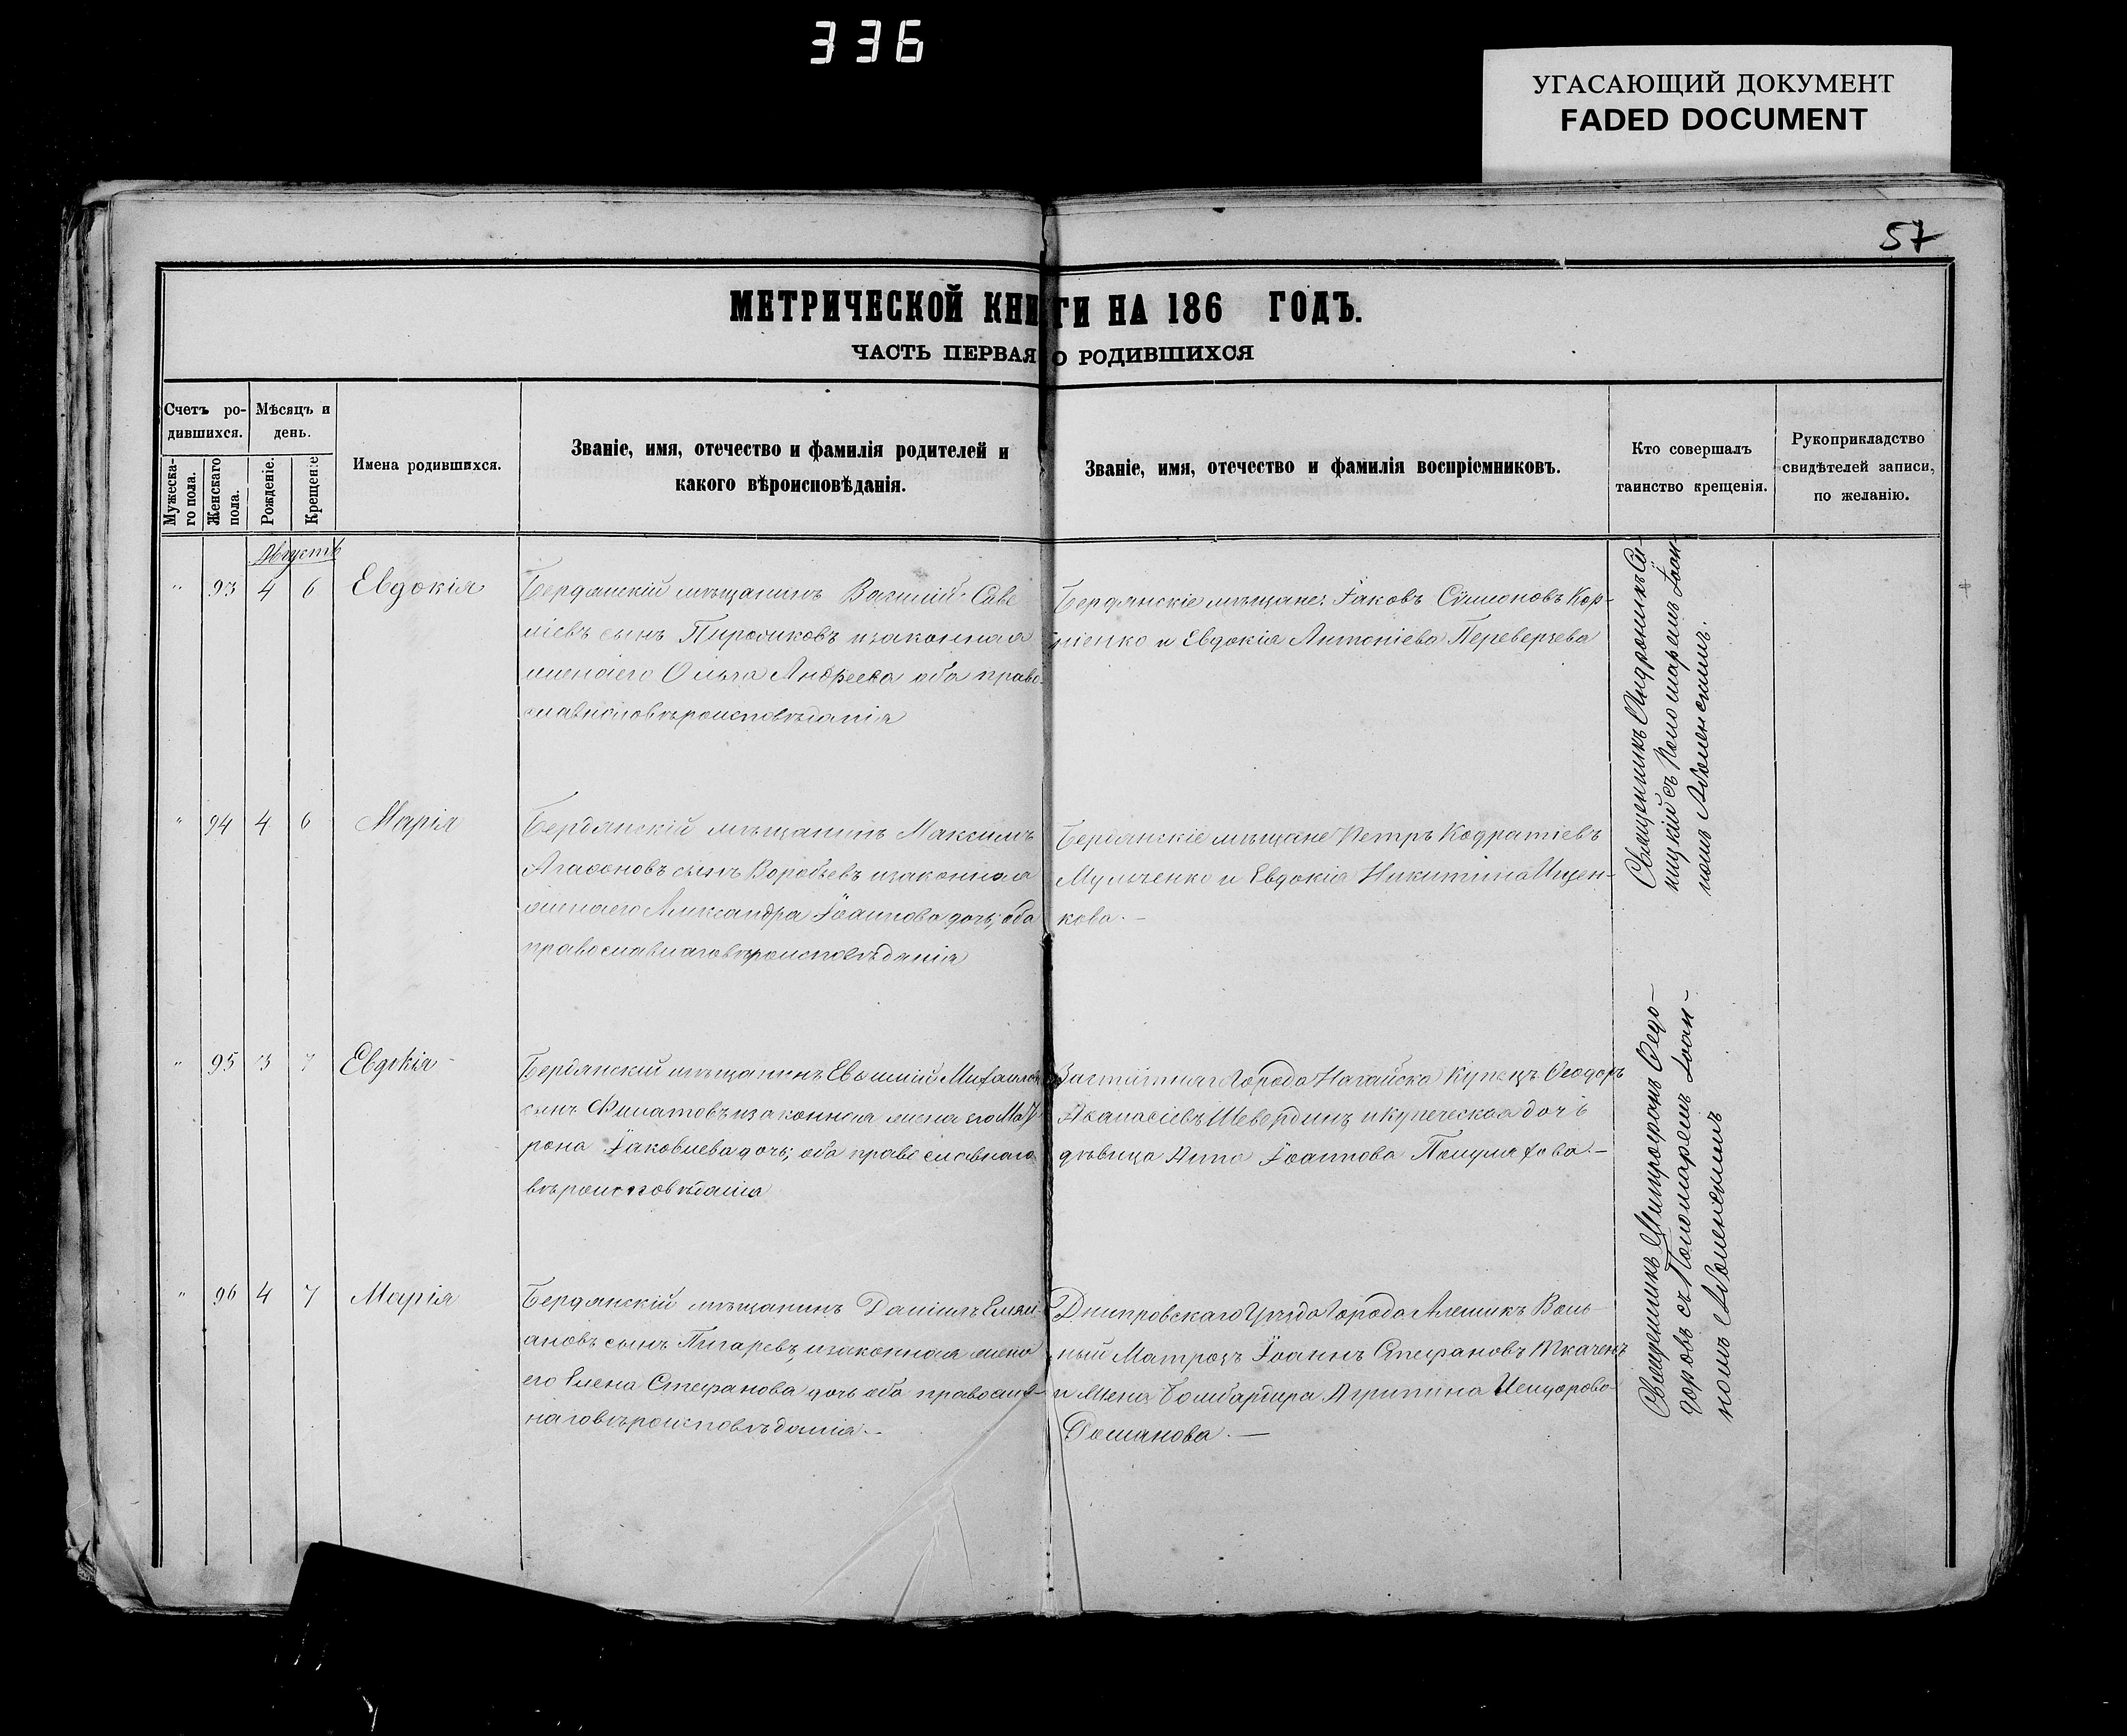 336
УГАСАЮЩИЙ ДОКУМЕНТ
FADED DOCUMENT
57
МЕТРИЧЕСКОЙ КНИГИ НА 186 ГОДЪ.
ЧАСТЬ ПЕРВАЯ О РОДИВШИХСЯ
Счетъ ро-
дившихся.
Мужеска-
го пола.
Женскаго
пола.
Мѣсяцъ и
день.
Рожденіе.
Крещеніе
Имена родившихся.
Званіе, имя, отечество и фамилія родителей и
какого вѣроисповѣданія.
Званіе, имя, отечество и фамилія воспріемниковъ.
Кто совершалъ
таинство крещенія.
Рукоприкладство
свидѣтелей записи,
по желанію.
Августъ
" 93 4 6 Евдокія
Бердянскій мѣщанинъ Василій Саве
ліевъ сынъ изаконная
женаего Ольга Андреева оба право-
славнаговѣроисповѣданія
Бердянскіе мѣщане: Іаковъ Сѷмеоновъ Кор-
ніенко и Евдокія Антоніева Переверзева
Священникъ Андроникъ Си-
ницкій съ Пономаремъ Іоан-
номъ
" 94 4 6 Марія
Бердянскій мѣщанинъ Максимъ
Агаѳоновъ сынъ Воробьевъ изаконная
женаего Александра Іоаннова дочь, оба
православнаговѣроисповѣданія
Бердянскіе мѣщане Петръ Кодратіевъ
Мульченко и Евдокія Никитина Ищен-
кова. —
" 95 3 7 Евдокія
Бердянскій мѣщанинъ Евѳимій Михаиловъ
сынъ Филатовъ изаконная жена его Мат
рона Іаковлева дочь; оба православнаго
вѣроисповѣданія
Заштатнаго Города Нагайска Купецъ Ѳеодоръ
Аѳанасіевъ Шевердинъ и купеческая дочь
дѣвица Анна Іоаннова —
Священникъ Митрофанъ Ѳедо-
ровъ съ Пономаремъ Іоан-
номъ
" 96 4 7 Марія
Бердянскій мѣщанинъ Даніилъ Емели-
ановъ сынъ Пигаревъ, изаконная жена
его Елена Стефанова дочь оба православ-
наговѣроисповѣданія. -
Днипровскаго Уѣзда Города Алешикъ Воль-
ный Матросъ Іоаннъ Стефановъ Ткаченк
и Жена Бомбардира Агрипина
Доманова. —